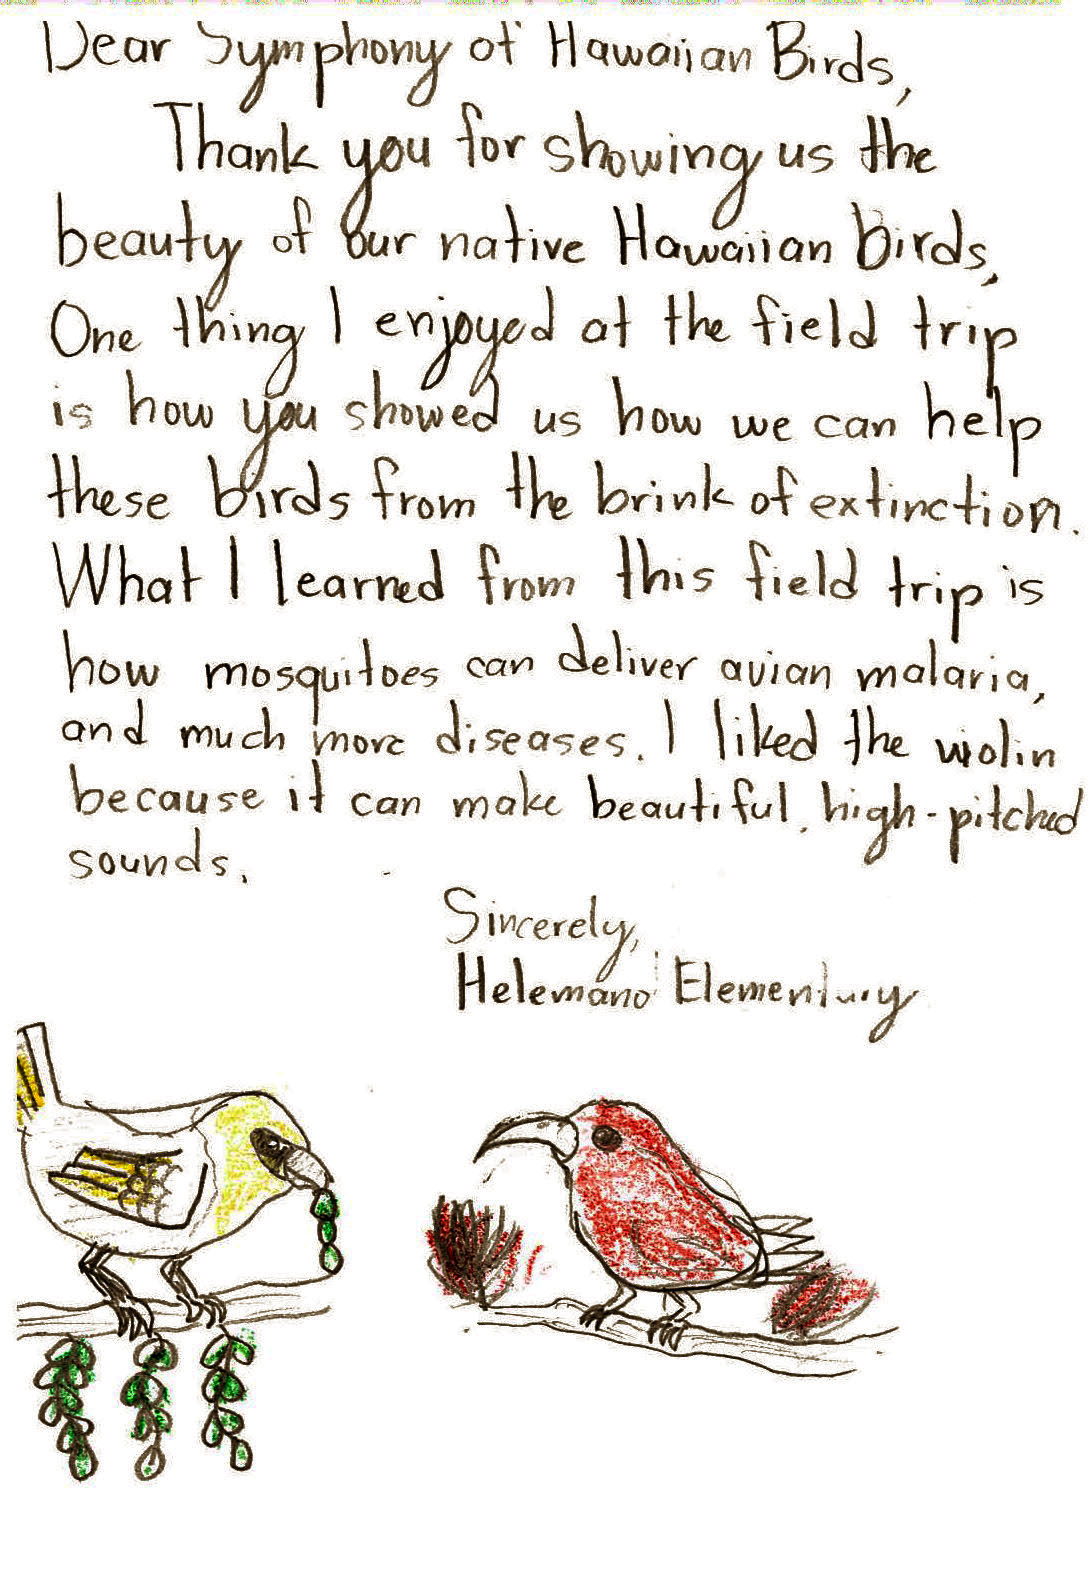 Dear Symphony of Hawaiian Birds,
Thank you for showing us the
beauty of our native Hawaiian Birds,
One thing I enjoyed at the field trip
is how you showed us how we can help
these birds from the brink of extinction.
What I learned from this field trip is
how mosquitoes can deliver avian malaria,
and much more diseases. I liked the violin
because it can make beautiful, high-pitched
sounds.
Sincerely,
Helemano Elementary